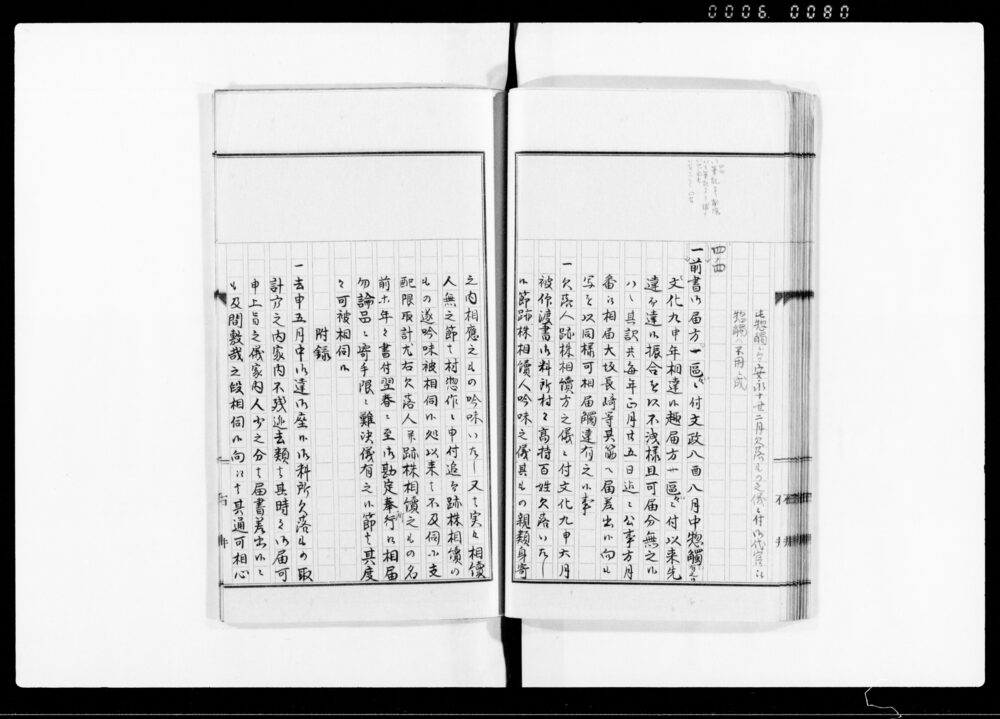 0006 0080
此惣觸ハ安永十丑二月欠落もの之儀ニ付御代官江
惣觸ハ不用ニ成
四四
一前書御届方一區ニ付文政八酉八月中惣觸
文化九申年相達候趣届方一區ニ付以来先
達而達候振合を以不洩様且可届分無之候
ハヽ其訳共毎年正月廿五日迄ニ公事方月
番江相届大坂長崎等其筋へ届差出候向も
写を以同様可相届觸達有之候事
一欠落人跡株相續方之儀ニ付文化九申六月
被作渡書御料所村々高持百姓欠落いたし
候節跡株相續人吟味之儀其もの親類身寄
之内相應之もの吟味いたし又は実々相續
人無之節は村惣作ニ申付追而跡株相續の
もの遂吟味被相伺候処以来は不及伺御支
配限取計尤右欠落人并跡株相續之もの名
前等年々書付翌春ニ至御勘定奉行所江相届
勿論品ニ寄手限ニ難決儀有之候節は其度
々可被相伺候
附録
一去申五月中御達座候御料所欠落もの取
計方之内家内不残逃去類は其時々御届可
申上旨之儀家内人少之分は届書差出候ニ
も及間敷哉之段相伺候向江は其通可相心